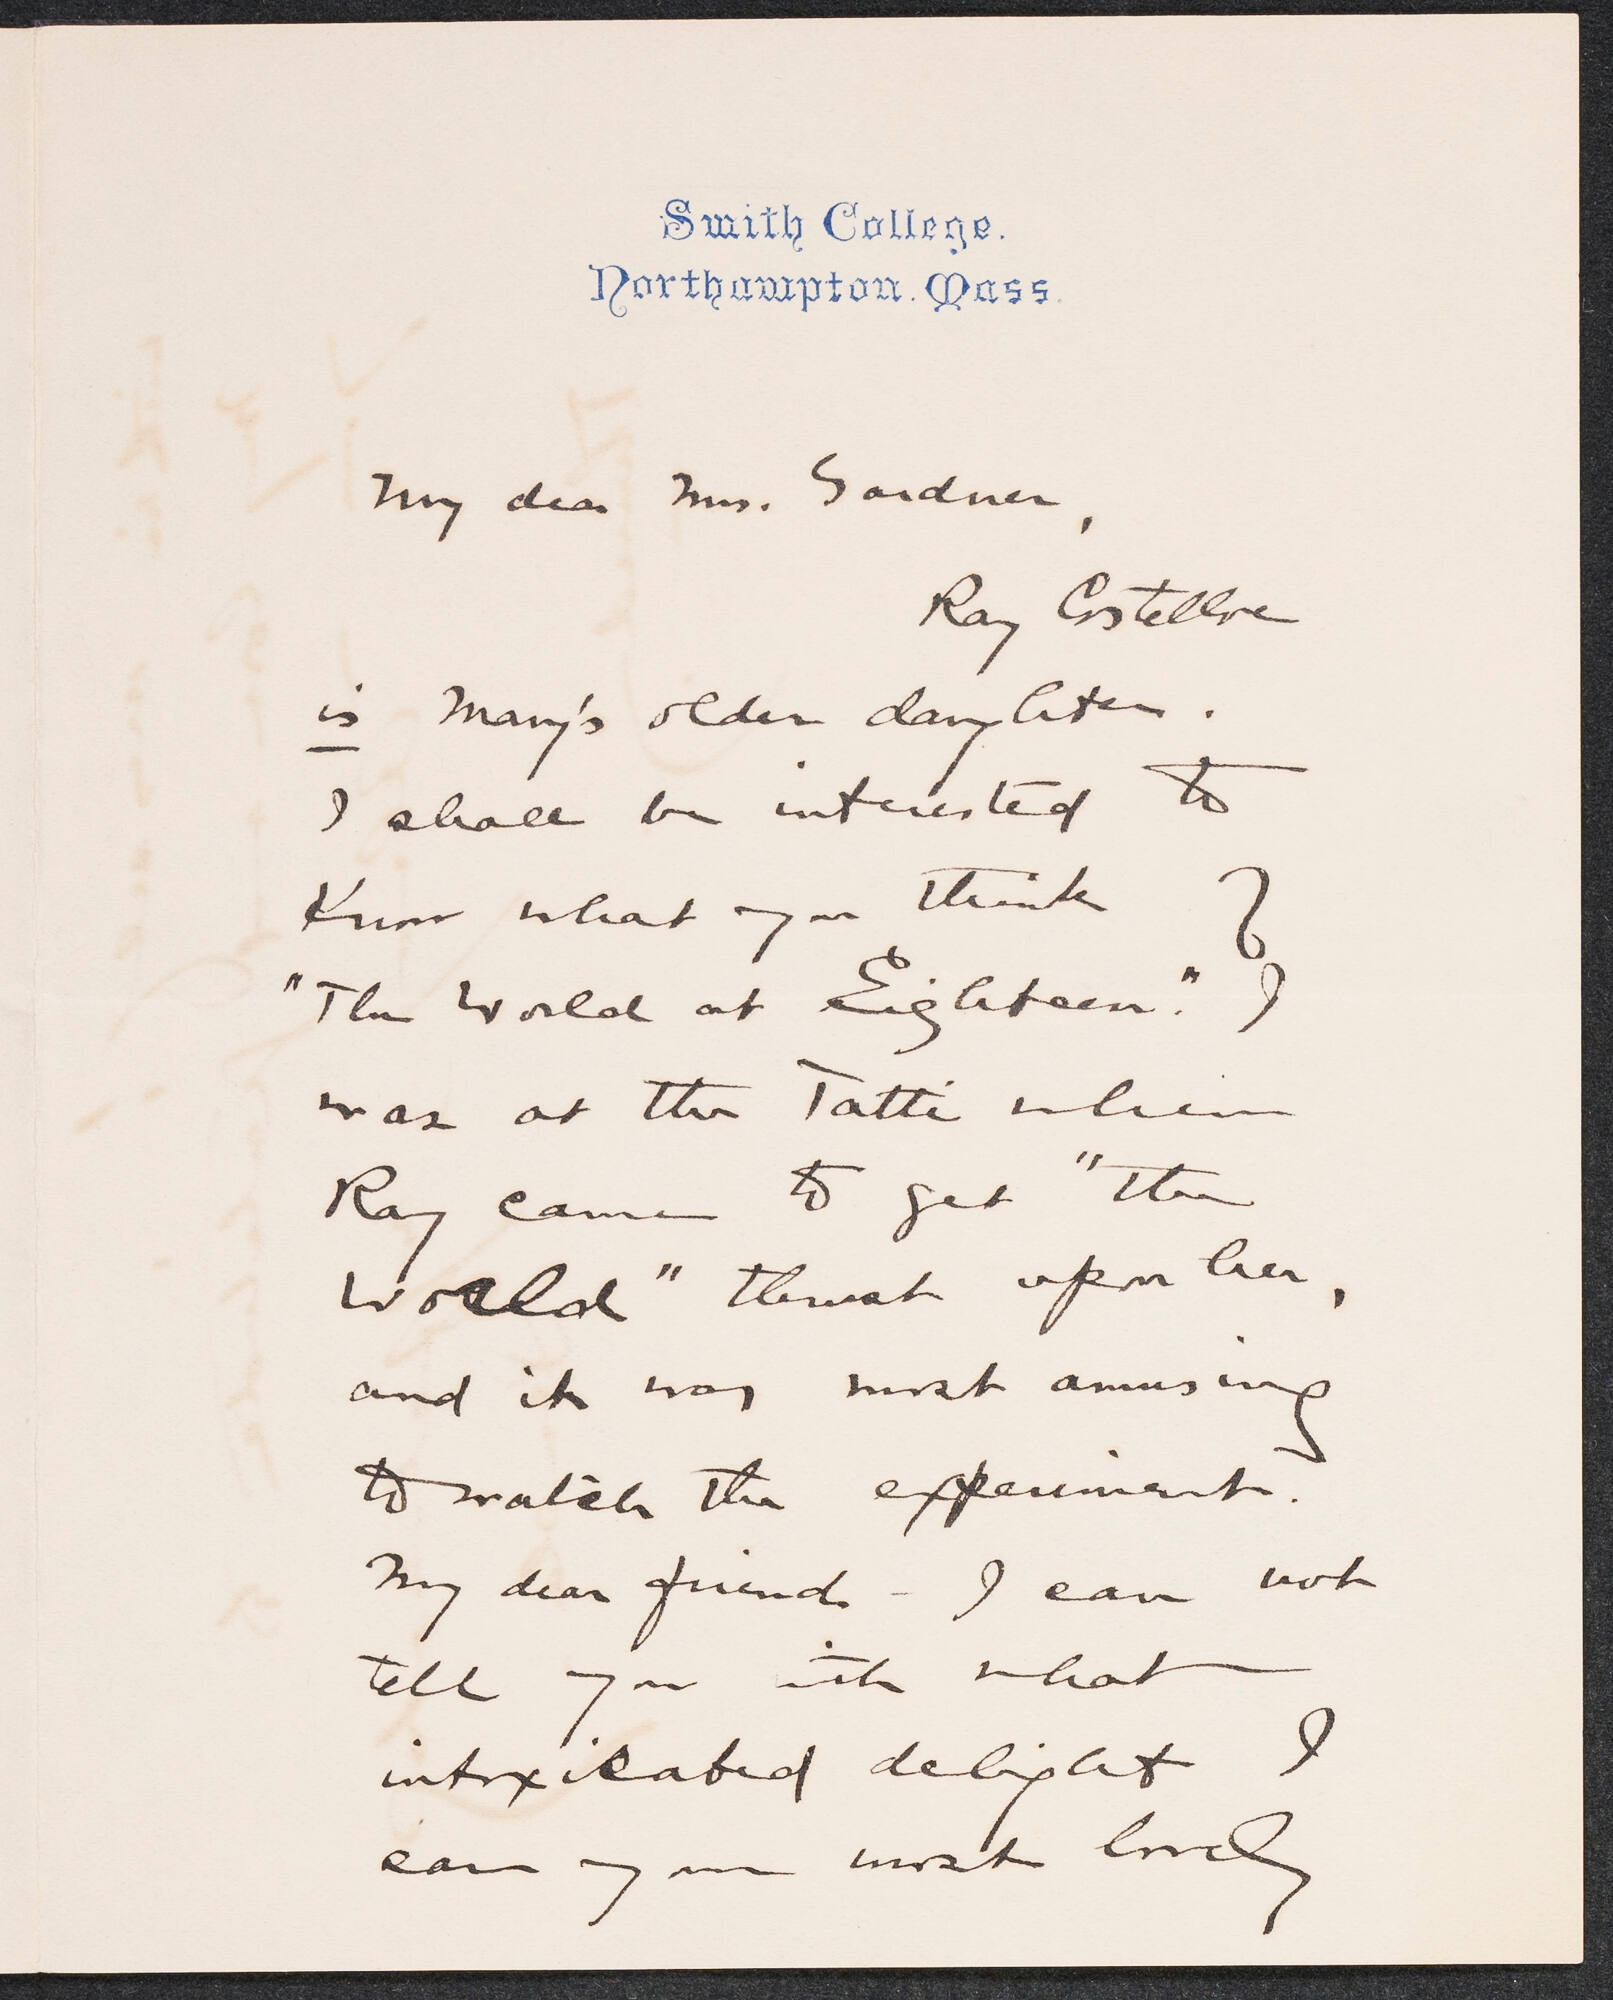 Smith College.
Northampton. Mass.
My dear Mrs. Gardner,
Ray Costelloe
is Mary's older daughter.
I shall be interested to
know what you think of
"The World at Eighteen." I
was at the Tatti when
Ray came to get "the
World" thrust upon her,
and it was most amusing
to watch the experiment.
My dear friend - I can not
tell you with what
intoxicated delight I
your most lovely